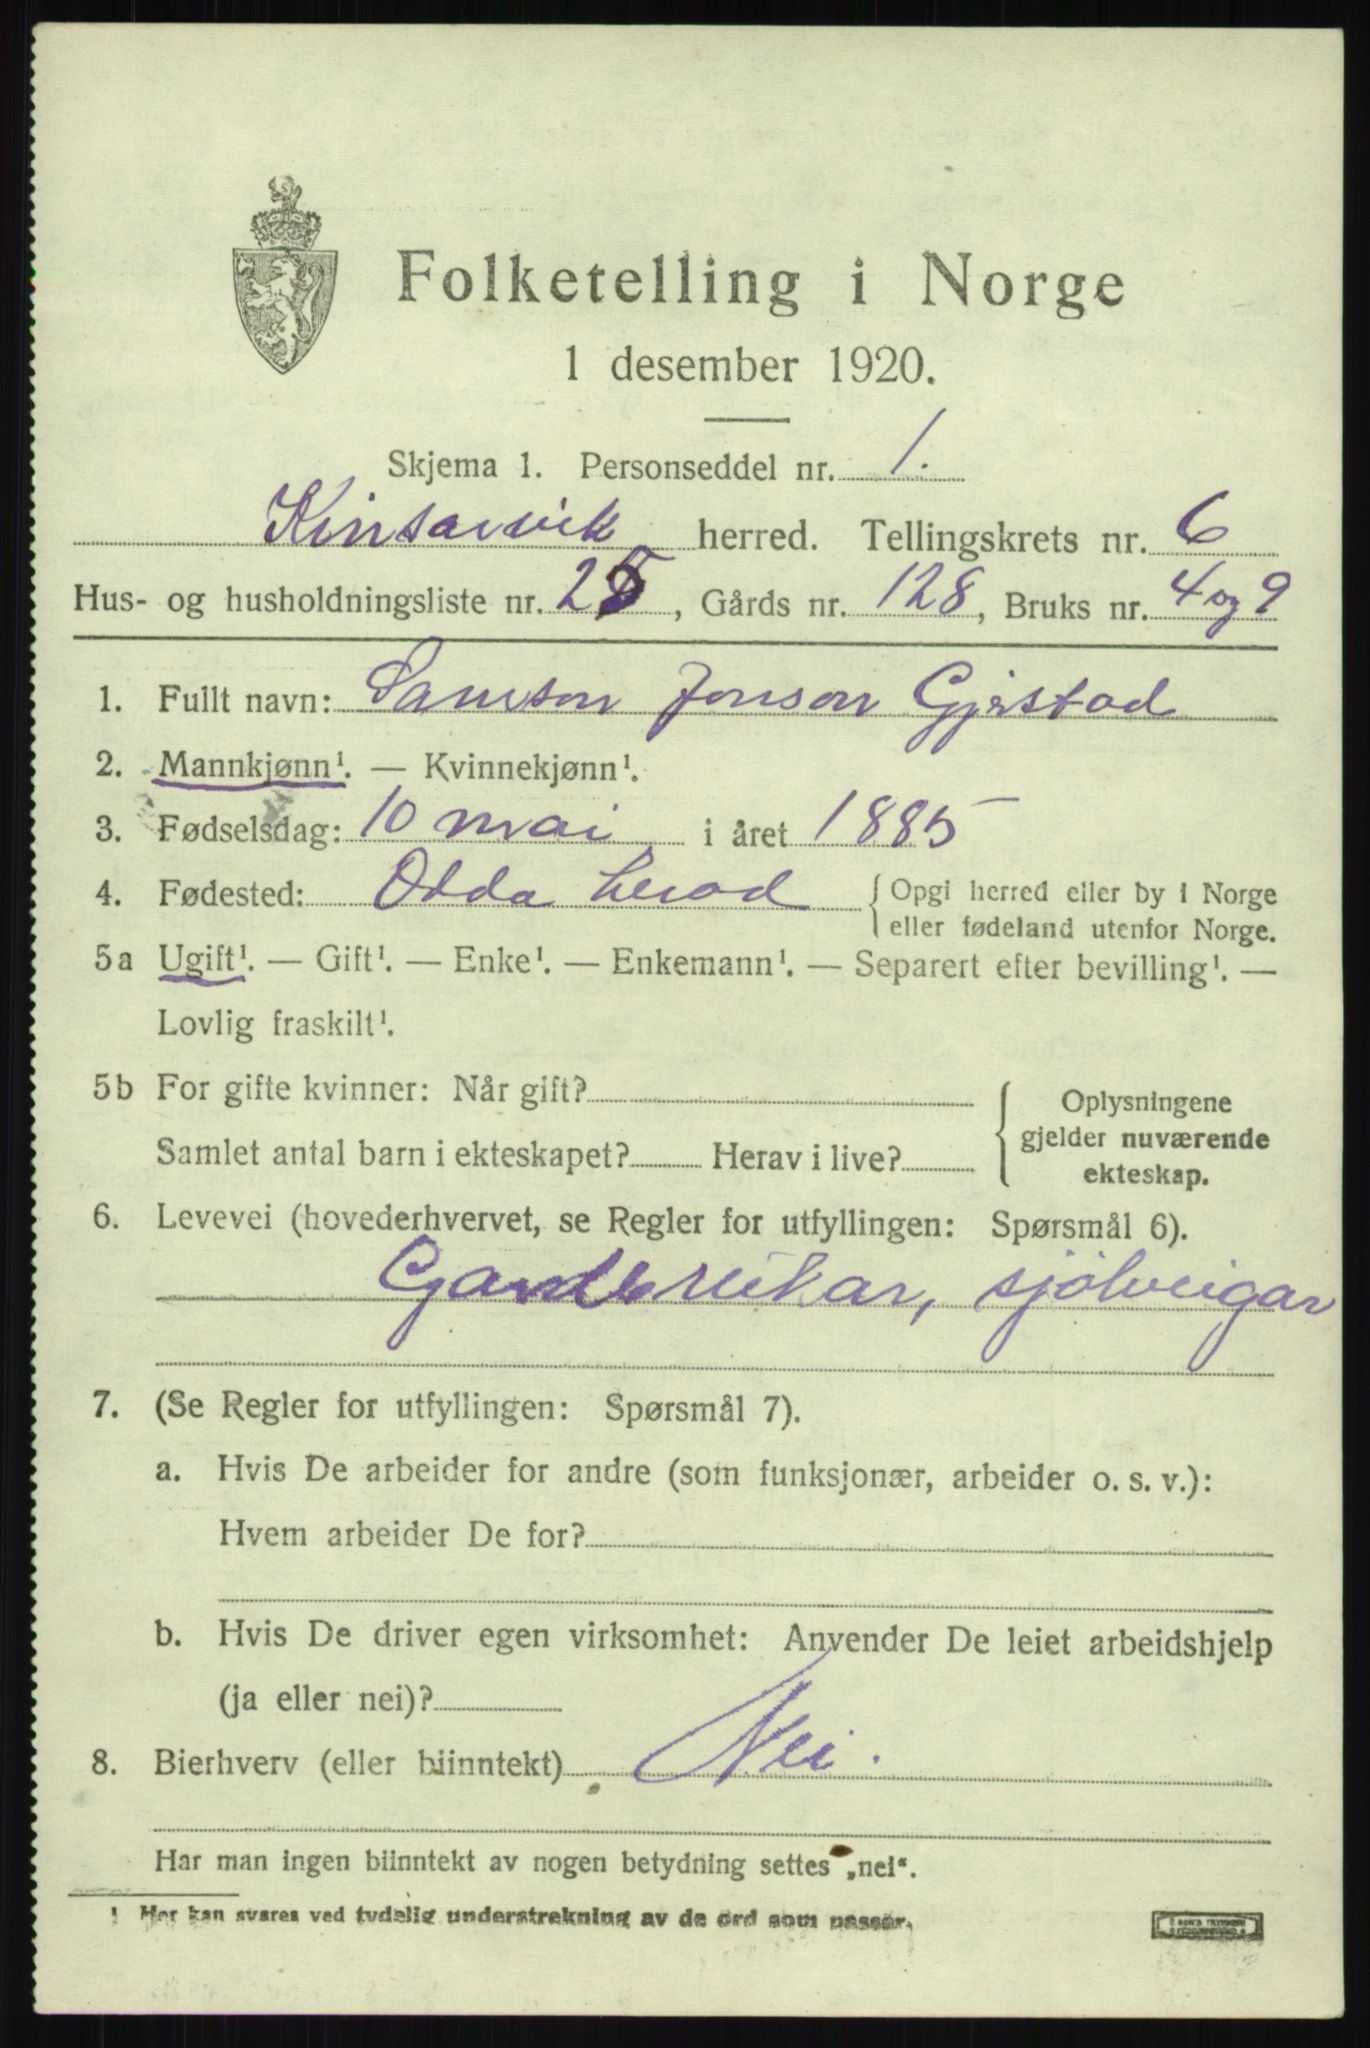 Folketelling i Norge
1 desember 1920.
Skjema 1. Personseddel nr. 1.
Kinsarvik herred. Tellingskrets nr. 6
Hus- og husholdningsliste nr. 25, Gårds nr. 128, Bruks nr. 4 og 9
1. Fullt navn: Samson Jonson Gjistad
2. Mannkjønn¹. — Kvinnekjønn¹.
3. Fødselsdag: 10 mai i året 1885
4. Fødested: Odda herad { Opgi herred eller by i Norge
eller fødeland utenfor Norge.
5a Ugift¹. — Gift¹. — Enke¹. — Enkemann¹. — Separert efter bevilling¹. —
Lovlig fraskilt¹.
5b For gifte kvinner: Når gift? { Oplysningene
gjelder nuværende
Samlet antal barn i ekteskapet? Herav i live?
ekteskap.
6. Levevei (hovederhvervet, se Regler for utfyllingen: Spørsmål 6).
Gardbrukar, sjölveigar
7. (Se Regler for utfyllingen: Spørsmål 7).
a. Hvis De arbeider for andre (som funksjonær, arbeider o. s. v.):
Hvem arbeider De for?
b. Hvis De driver egen virksomhet: Anvender De leiet arbeidshjelp
(ja eller nei)?
8. Bierhverv (eller biinntekt) Nei.
Har man ingen biinntekt av nogen betydning settes „nei“.
1 Her kan svares ved tydelig understrekning av de ord som passer.